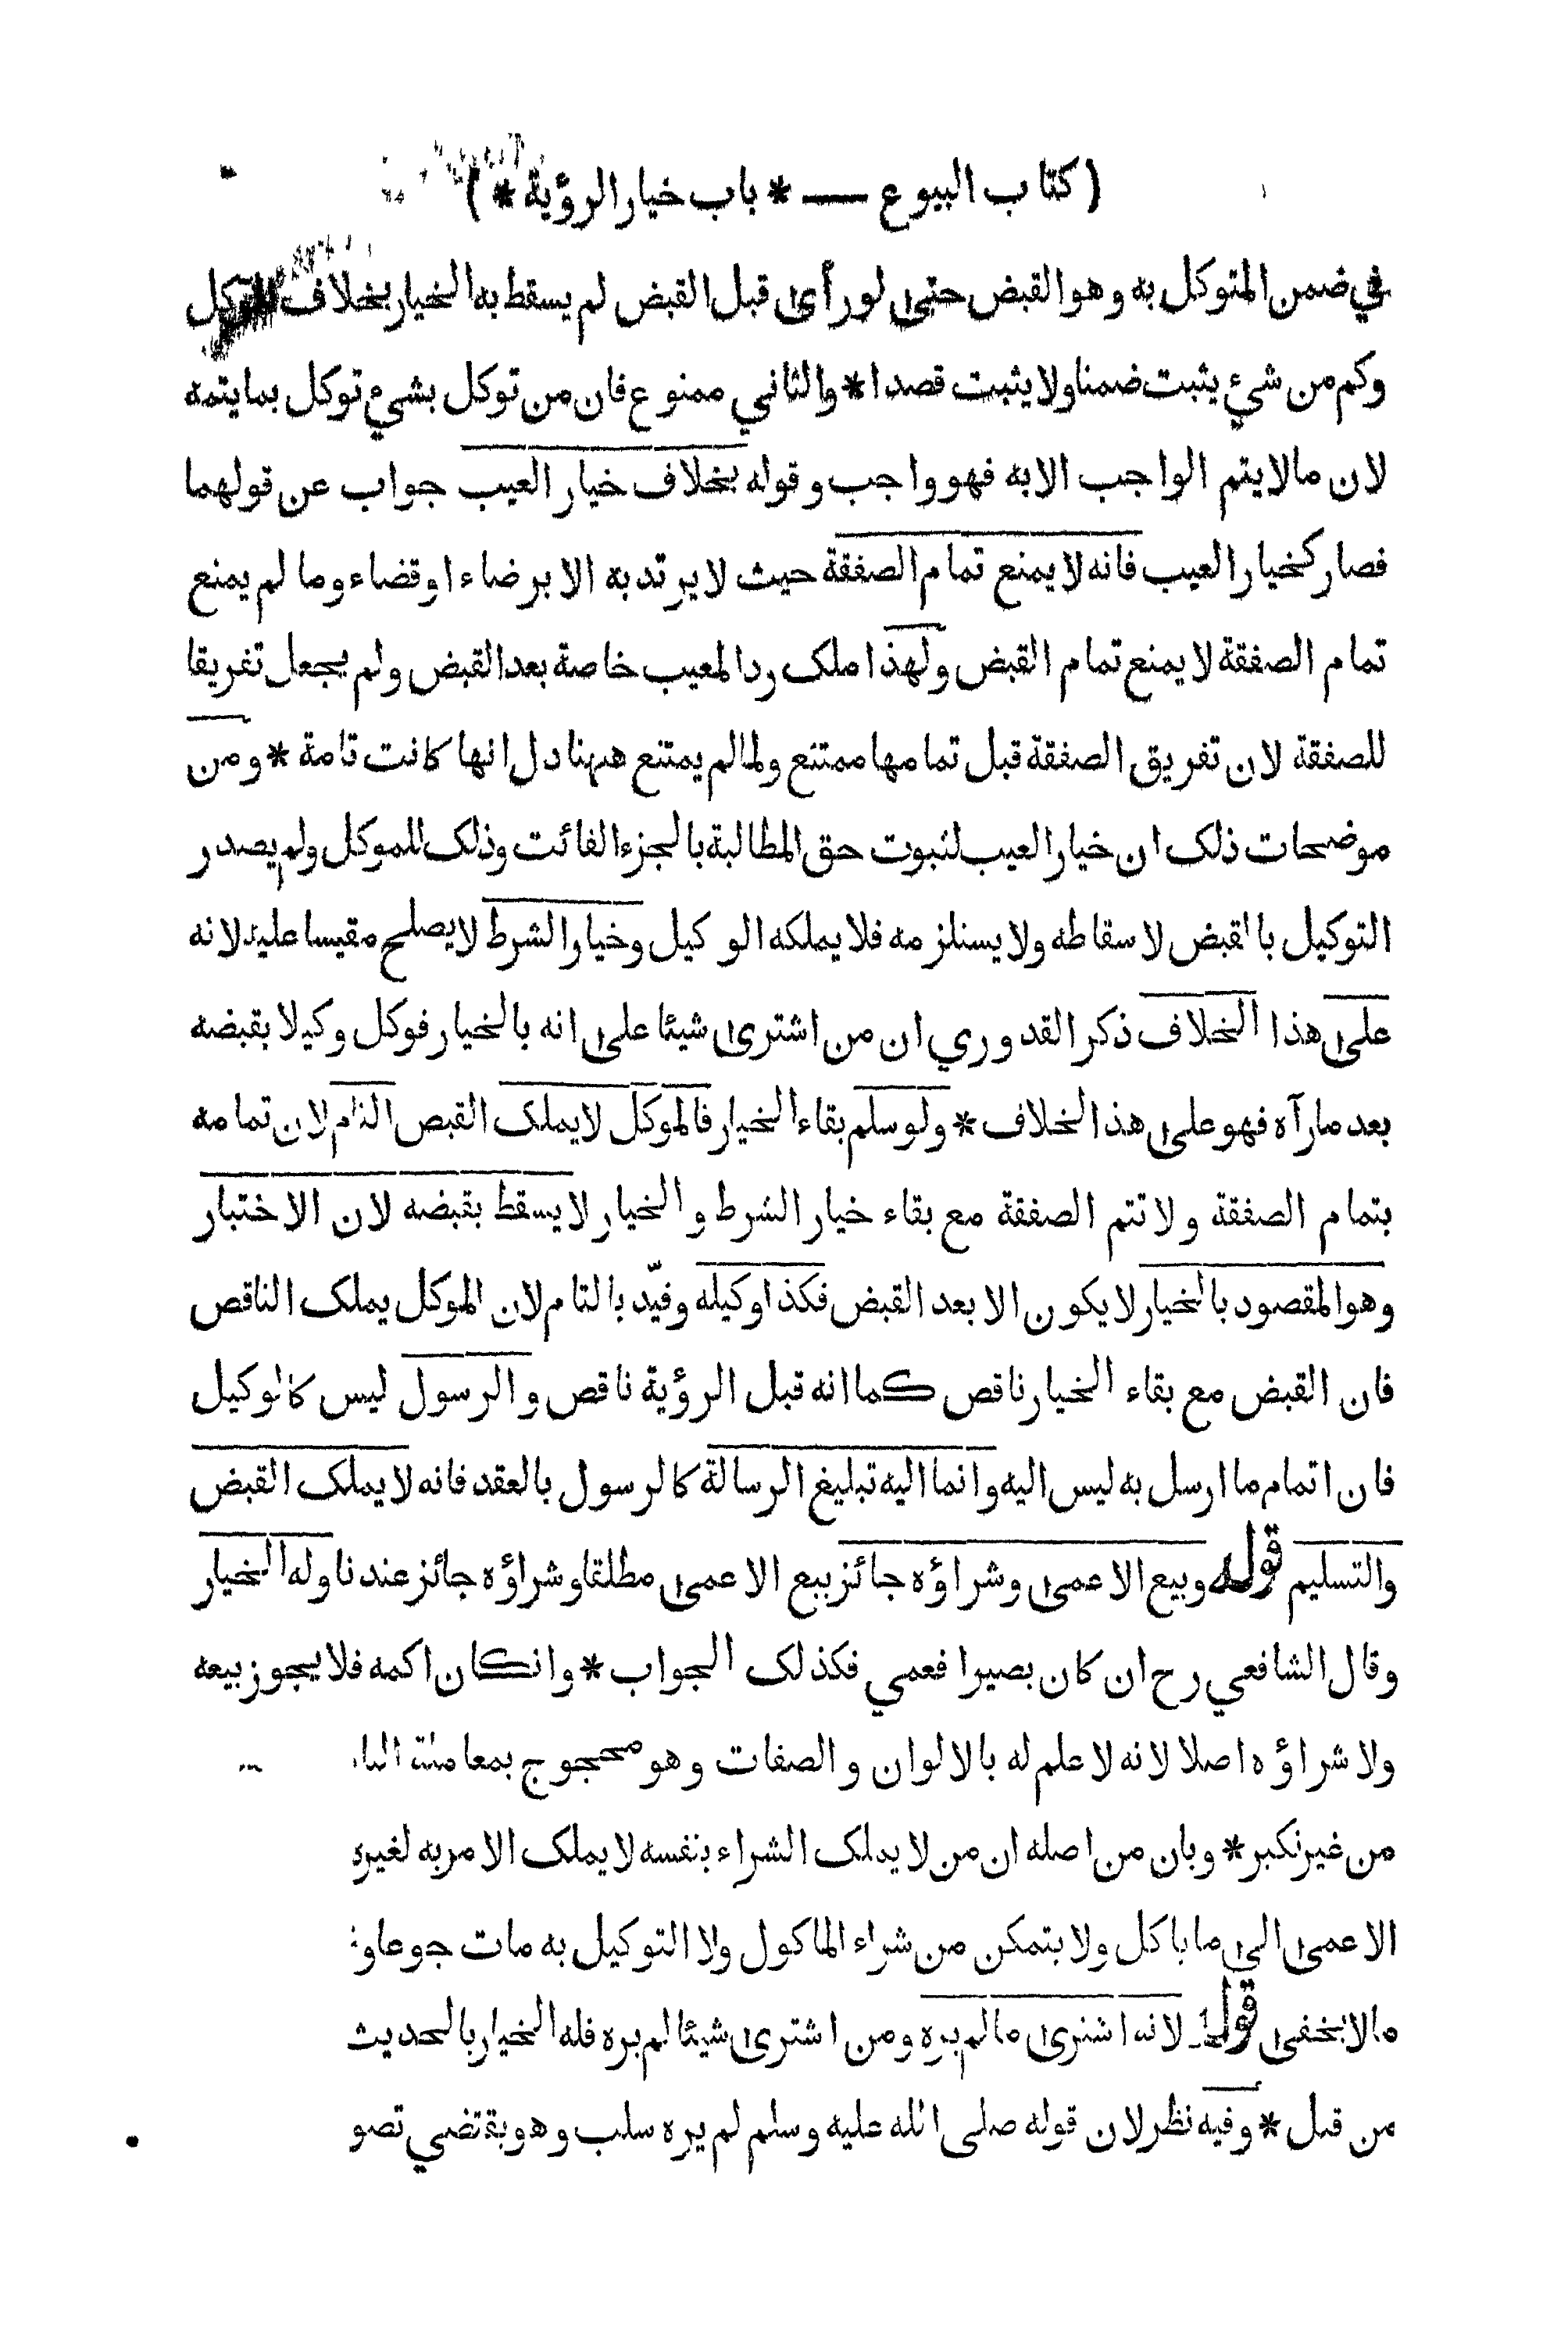 ( كتاب البيوع — * باب خيار الرؤية * )
في ضمن المتوكل به وهو القبض حتى لو رأى قبل القبض لم يسقط به الخيار بخلاف
وكم من شيء يثبت ضمنا ولا يثبت قصدا * والثاني ممنوع فان من توكل بشيء توكل بما يتمه
لان مالا يتم الواجب الا به فهو واجب وقوله بخلاف خيار العيب جواب عن قولهما
فصار كخيار العيب فانه لا يمنع تمام الصفقة حيث لا يرتد به الا برضاء او قضاء وما لم يمنع
تمام الصفقة لا يمنع تمام القبض ولهذا ملك رد المعيب خاصة بعد القبض ولم يجعل تفريقا
للصفقة لان تفريق الصفقة قبل تمامها ممتنع ولما لم يمتنع ههنا دل انها كانت تامة * ومن
موضحات ذلك ان خيار العيب لثبوت حق المطالبة بالجزء الفائت وذلك للموكل ولم يصدر
التوكيل بالقبض لاسقاطه ولا يستلزمه فلا يملكه الوكيل وخيار الشرط لا يصلح مقيسا عليه لانه
على هذا الخلاف ذكر القدوري ان من اشترى شيئا على انه بالخيار فوكل وكيلا بقبضه
بعد ما رآه فهو على هذا الخلاف * ولو سلم بقاء الخيار فالموكل لا يملك القبض التام لان تمامه
بتمام الصفقة ولا تتم الصفقة مع بقاء خيار الشرط والخيار لا يسقط بقبضه لان الاختبار
وهو المقصود بالخيار لا يكون الا بعد القبض فكذا وكيله وقيّد بالتام لان الموكل يملك الناقص
فان القبض مع بقاء الخيار ناقص كما انه قبل الرؤية ناقص والرسول ليس كالوكيل
فان اتمام ما ارسل به ليس اليه وانما اليه تبليغ الرسالة كالرسول بالعقد فانه لا يملك القبض
والتسليم قوله وبيع الاعمى وشراؤه جائز بيع الاعمى مطلقا وشراؤه جائز عندنا وله الخيار
وقال الشافعي رح ان كان بصيرا فعمي فكذلك الجواب * وانكان اكمه فلا يجوز بيعه
ولا شراؤه اصلا لانه لا علم له بالالوان والصفات وهو محجوج بمعاملة
من غير نكير * وبان من اصله ان من لا يملك الشراء بنفسه لا يملك الامر به لغيره
الاعمى الى ما ياكل ولا يتمكن من شراء الماكول ولا التوكيل به مات جوعا
مالا يخفى قوله لانه اشترى ما لم يره ومن اشترى شيئا لم يره فله الخيار بالحديث
من قبل * وفيه نظر لان قوله صلى الله عليه وسلم لم يره سلب وهو يقتضي